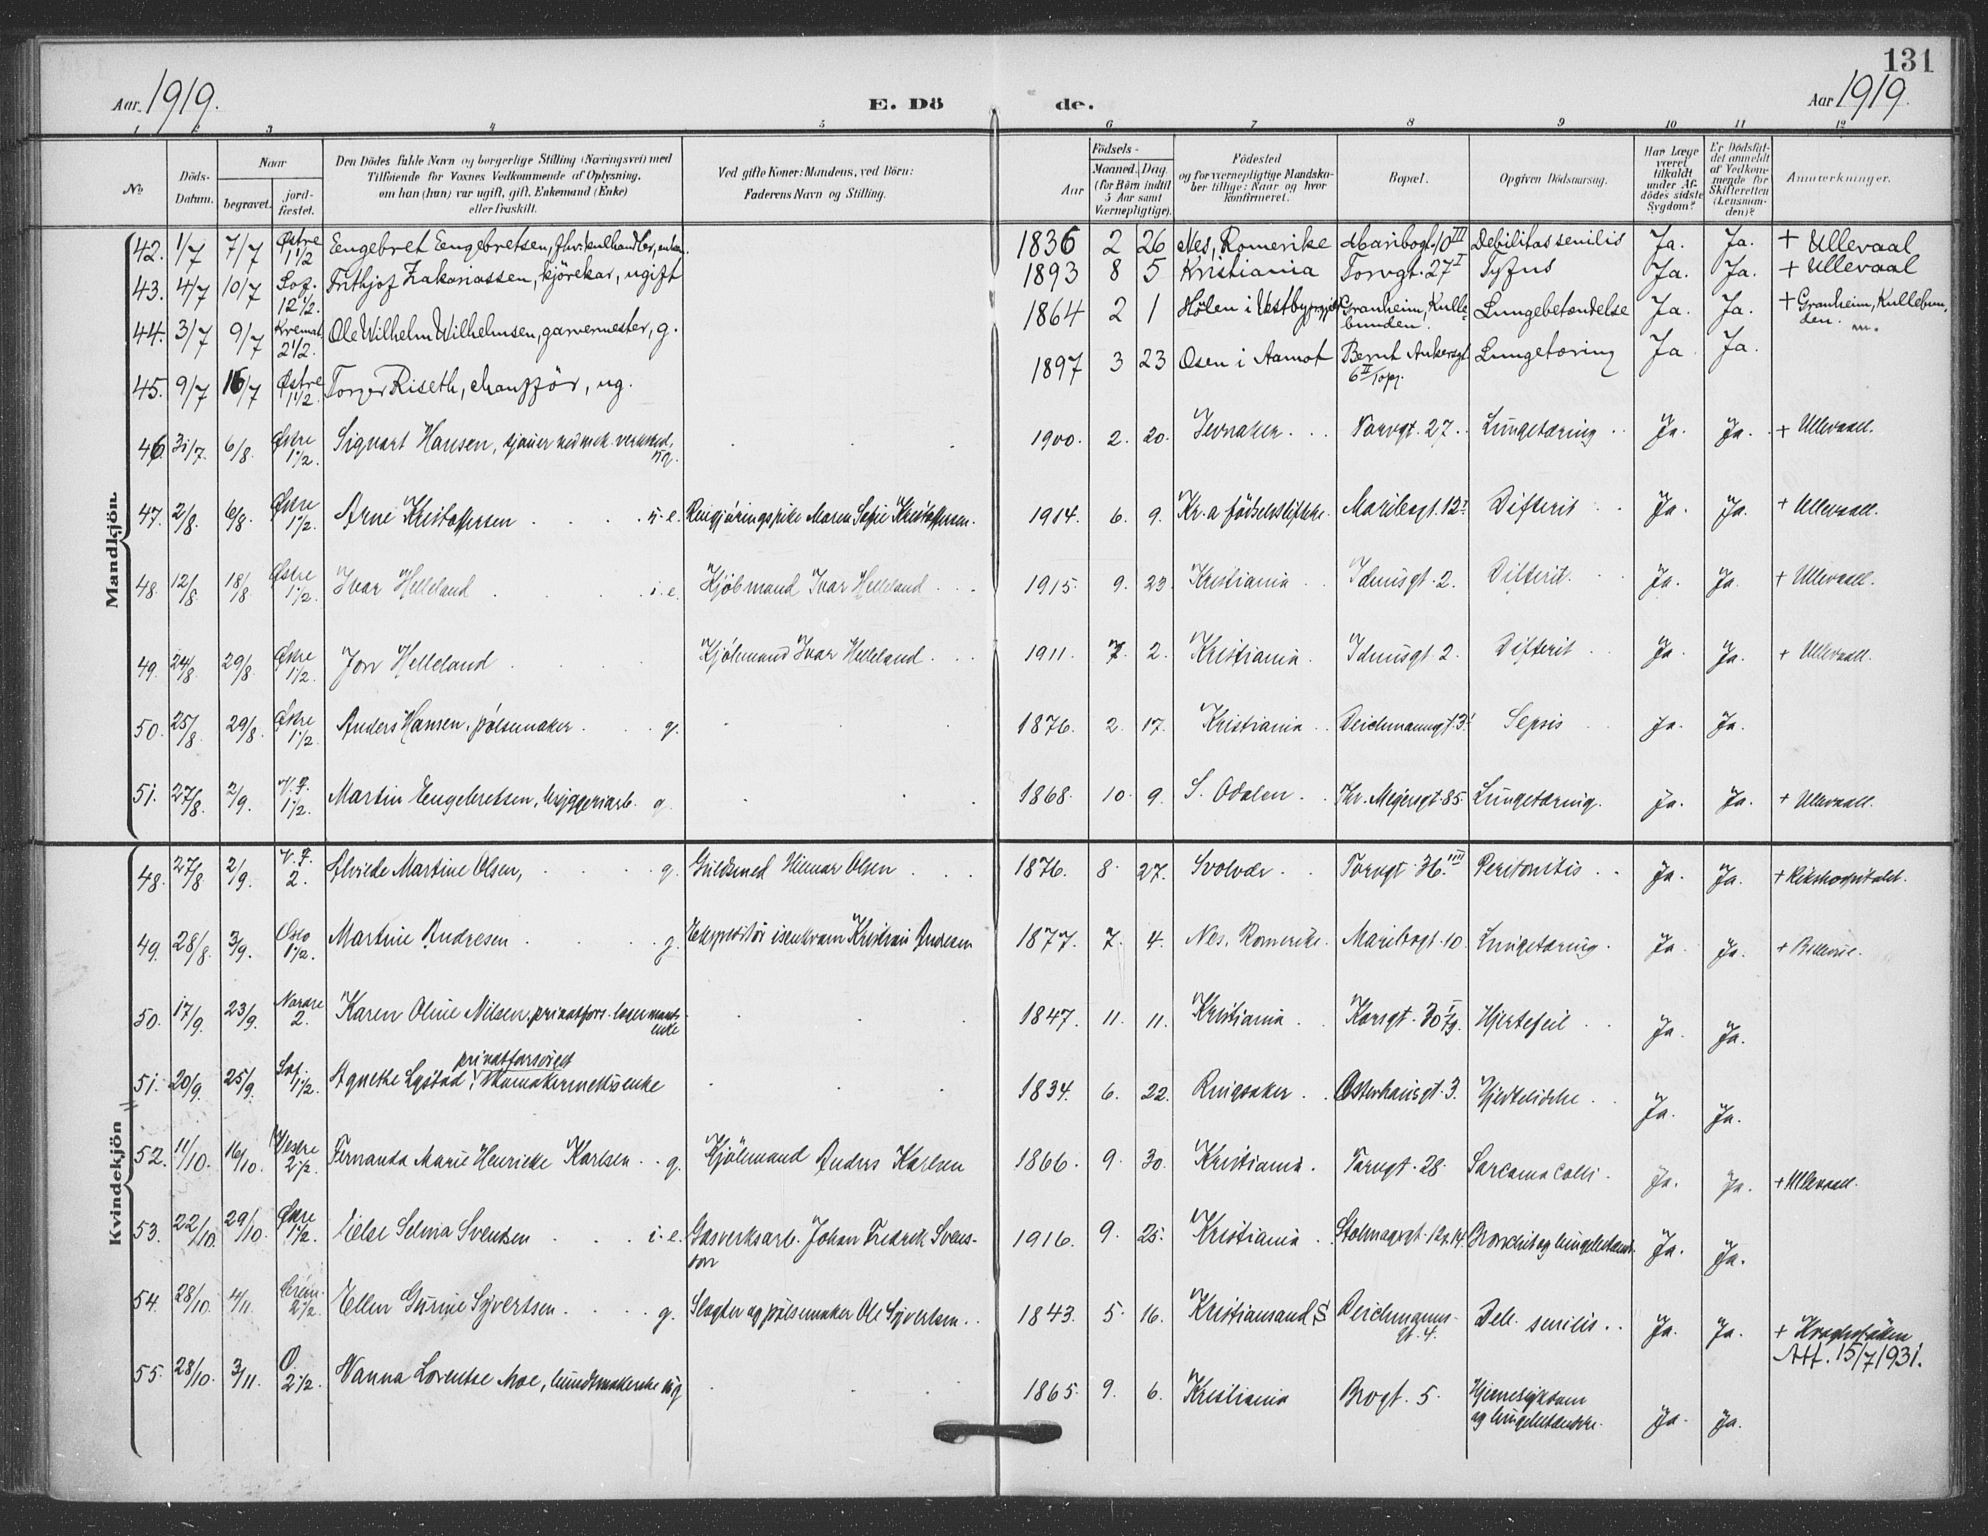 131
Aar 1919. E. Dö de. Aar 1919.
1 2 3 4 5 6 7 8 9 10 11 12
No
Döds-Datum.
Naar
begravet.
jord-fæstet.
Den Dödes fulde Navn og borgerlige Stilling (Næringsvei) med
Tilföiende for Voxnes Vedkommende af Oplysning,
om han (hun) var ugift, gift, Enkemand (Enke)
eller fraskilt.
Ved gifte Koner: Mandens, ved Börn:
Faderens Navn og Stilling.
Födsels-
Aar
Maaned. Dag
(for Börn indtil
5 Aar samt
Værnepligtige).
Födested
og for værnepligtige Mandska-
ber tillige: Naar og hvor
konfirmeret.
Bopæl.
Opgiven Dödsaarsag.
Har Læge
været
tilkaldt
under Af-
dödes sidste
Sygdom?
Er Dödsfal-
det anmeldt
af Vedkom-
mende for
Skifteretten
(Lensman-
den)?
Anmærkninger.
Mandkjön
42. 1/7 7/7 Østre 1 1/2 Eengebret Eengebretsen, 1836 2 26 Nes, Romerike Maribogt. 10 III Debilitas senilis Ja. Ja. + Ullevaal
43. 4/7 10/7 Sof. 12 1/2. Frithjof Zakariassen, kjörekar, ugift 1893 8 5 Kristiania Torvgt. 27 I Tyfus Ja. Ja. + Ullevaal
44. 3/7 9/7 Kremat. 2 1/2. Ole Wilhelm Wilhelmsen, garvermester, g. 1864 2 1 Hölen i Vestby Granheim, Kulle-bunden. Lungebetændelse Ja. Ja. + Granheim, Kullebun-den.
45. 9/7 16/7 Østre 1 1/2. Riseth, ug. 1897 3 23 Osen i Aamot Bernt Ankersgt 6 II Lungetæring Ja. Ja.
46. 31/7. 6/8. Østre 1 1/2. Sigvart Hansen, ved mek. verksted, ug. 1900. 2. 20. Jevnaker. Torvgt. 27. Lungetæring Ja. Ja. + Ullevaall.
47. 2/8. 6/8. Østre 1 1/2. Arne Kristoffersen u. e. Rengjöringspike Maren Sofie Kristoffersen. 1914. 6. 9. Kr.a födselsstiftelse. Maribogt. 12 I Difterit Ja. Ja. + Ullevaall.
48. 12/8. 18/8. Østre 1 1/2. Ivar Helleland i. e. Kjöbmand Ivar Helleland 1915. 9. 23. Kristiania Idunsgt. 2. Difterit. Ja. Ja. + Ullevaall.
49. 24/8. 29/8. Østre 1 1/2. Jon Helleland Kjöbmand Ivar Helleland. 1911. 7. 2. Kristiania. Idunsgt. 2. Difterit Ja. Ja. + Ullevaall.
50. 25/8. 29/8. Østre 1 1/2. Anders Hansen, pölsemaker g. 1876. 2. 17. Kristiania Deichmannsgt. 3 Sepsis Ja. Ja.
51. 27/8. 2/9. V. F. 1 1/2. Martin Eengebretsen, bryggeriarb. g. 1868. 10. 9. S. Odalen. Thv. Meyersgt. 85. Lungetæring. Ja. Ja. + Ullevaall.
Kvindekjön
48. 27/8 2/9. V. F. 2. Alvilde Martine Olsen, g. Guldsmed Olsen 1876. 8. 27. Svolvær Torvgt. 36. Peritonitis Ja. Ja. + Rikshospitalet.
49. 28/8. 3/9. Oslo 1 1/2. Martine Andresen g. Ekspeditör isenkram Kristian Andresen 1877. 7. 4. Nes. Romerike. Maribogt. 10 Lungetæring. Ja. Ja. + Bellevue.
50. 17/9. 23/9. Nordre 2. Karen Oline Nilsen, privatfors. enke 1847. 11. 11. Kristiania Korsgt. 30 I Hjertefeil Ja. Ja.
51. 20/9. 25/9. Sof. 1 1/2. Agnethe Lystad, privatforsörget skomakermestersenke 1834. 6. 22. Ringsaker Osterhausgt. 3. Hjertelidelse Ja. Ja.
52. 11/10. 16/10. Vestre 2 1/2. Fernanda Marie Henrikke Karlsen g. Kjöbmand Anders Karlsen 1866. 9. 30. Kristiania. Torvgt. 28. Sarcoma colli Ja. Ja. + Ullevaall.
53. 22/10. 29/10. Østre 1 1/2. Else Selma Svendsen i. e. Gasverksarb. Johan Fredrik Svend-sen 1916. 9. 25. Kristiania Stolmagergt. 12 & 14 Bronchit og lungebetænd. Ja. Ja.
54. 28/10. 4/11. Crem. 2 1/2. Ellen Gurine Syvertsen. g. Slagter og pölsemaker Ole Syvertsen. 1843. 5. 16. Kristiansand S Deichmanns-gt. 4. Deb. senilis Ja. Ja. + Krag
Att. 15/7 1931.
55. 28/10. 3/11. O. 2 1/2. Nanna Lorentse Moe, buntmakerske ug. 1865. 9. 6. Kristiania Brogt. 5. Hjernesykdom og lungebetændelse. Ja. Ja.